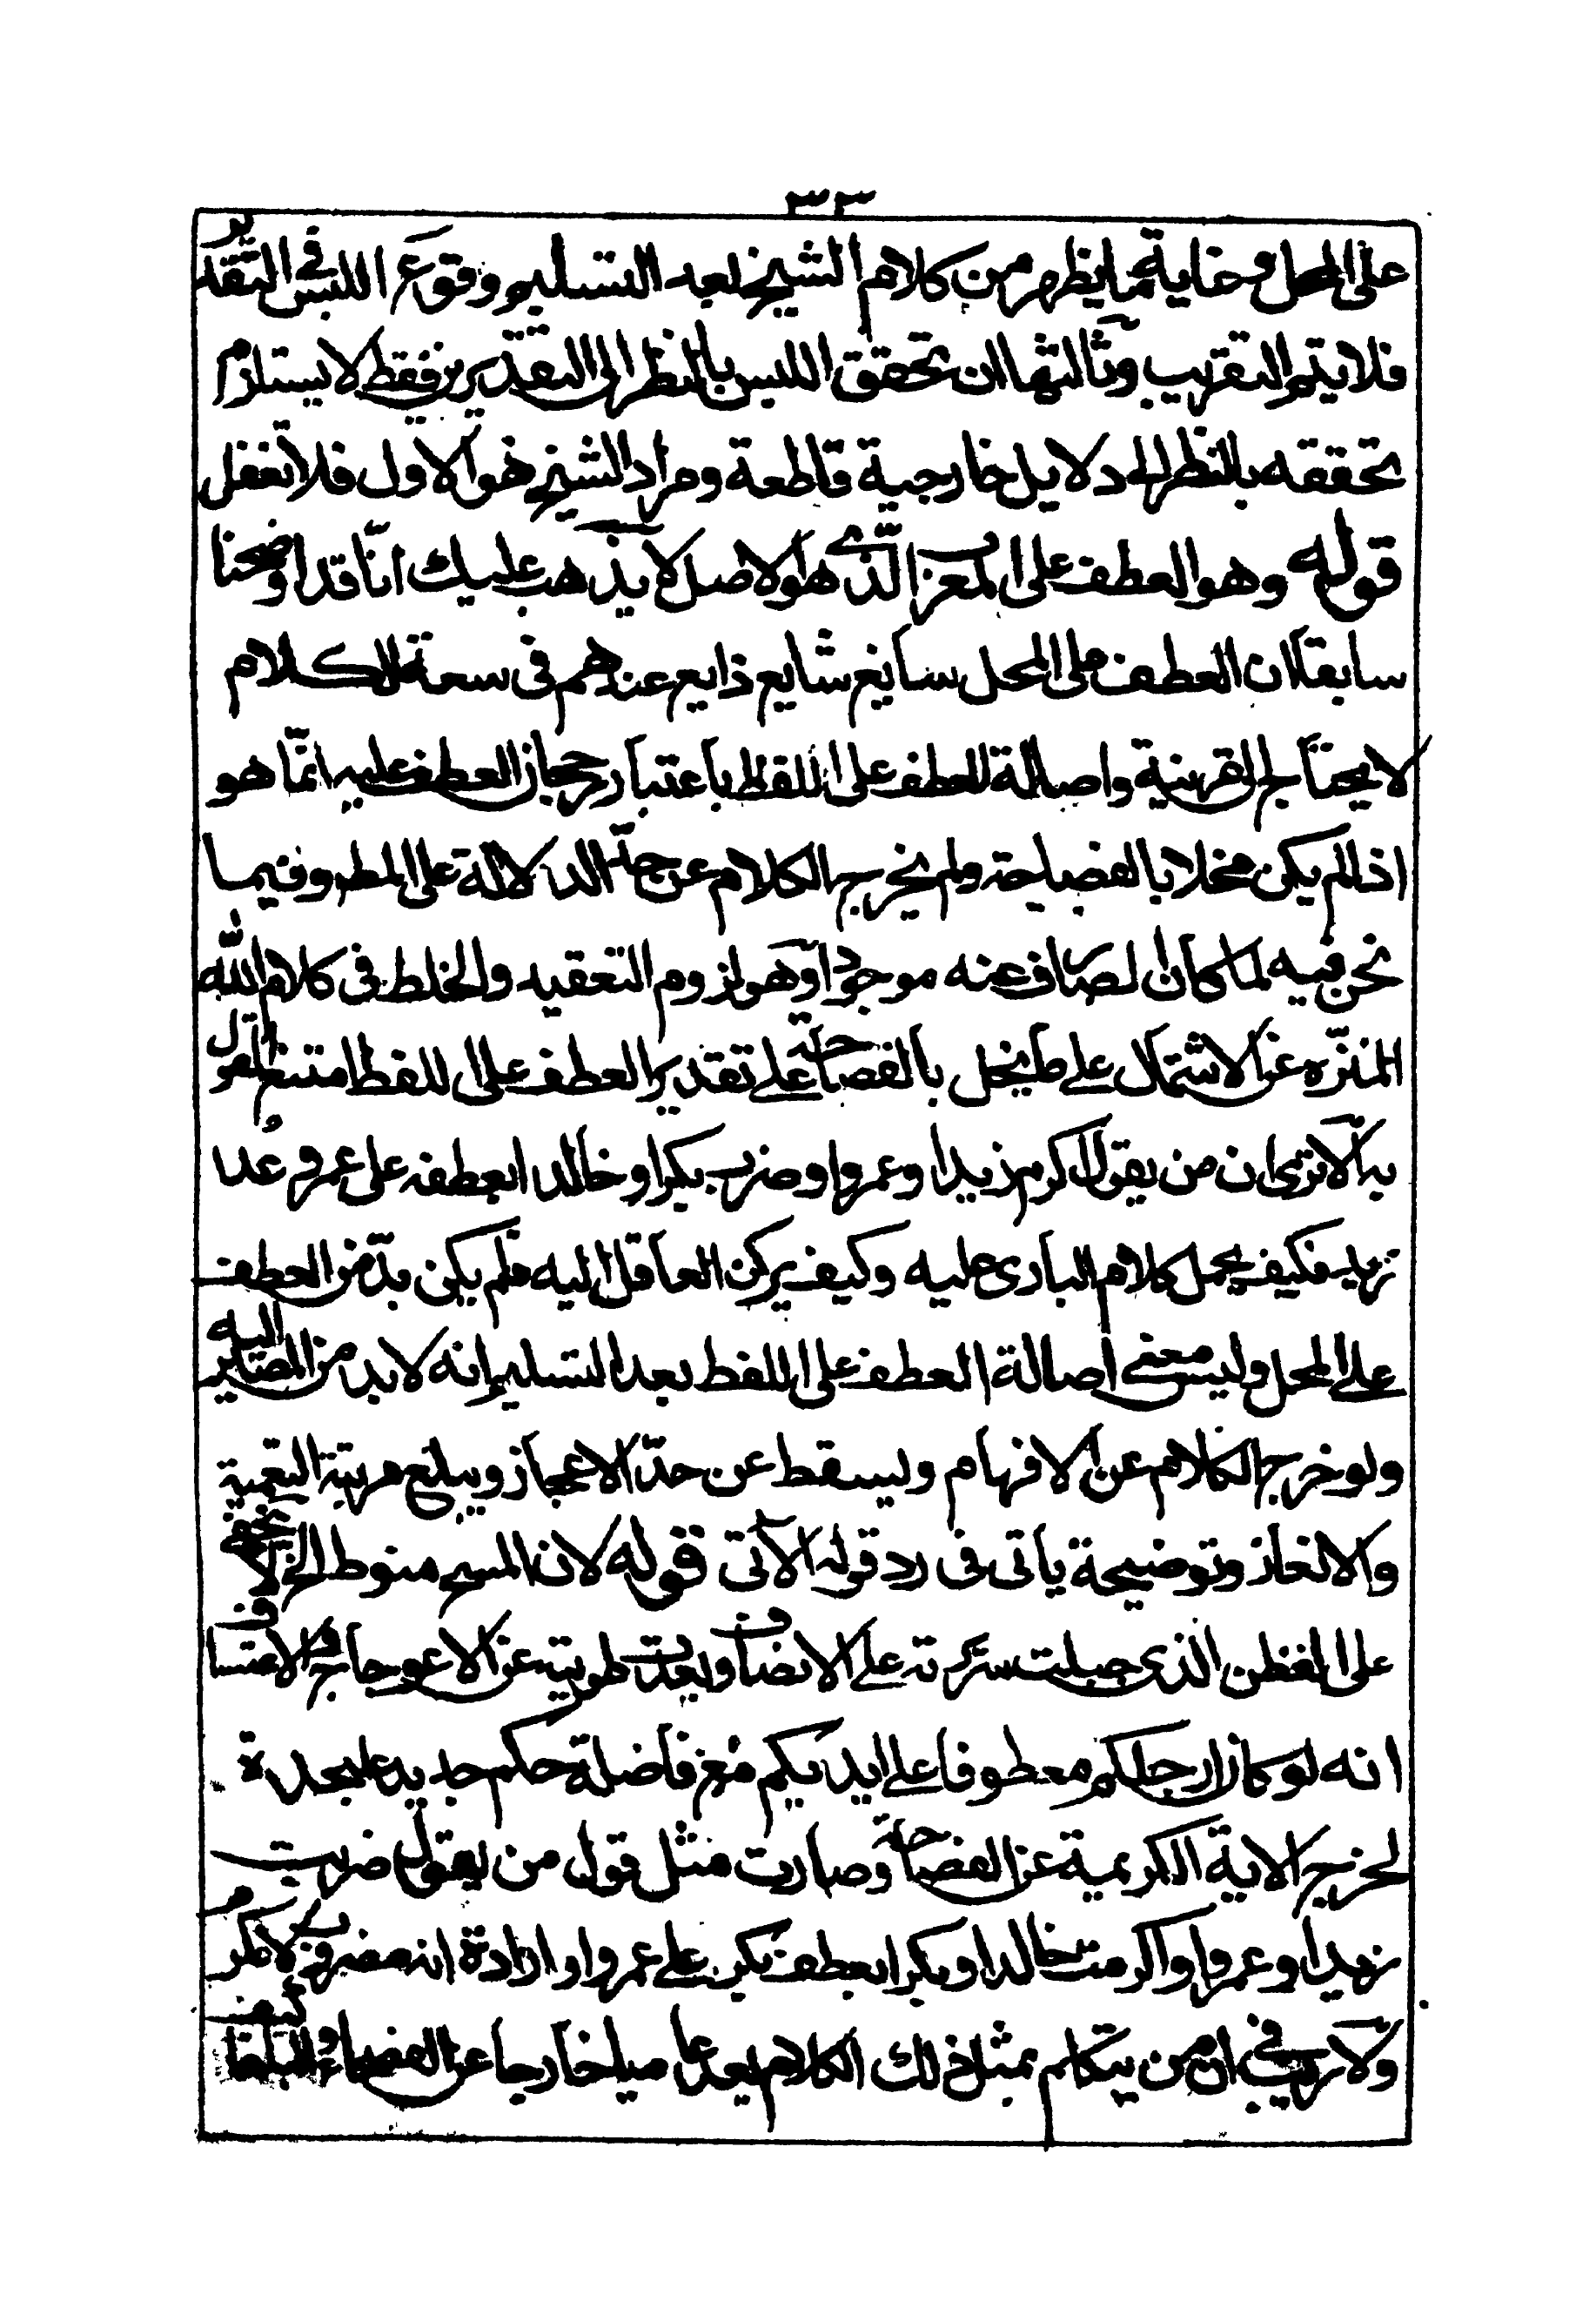 ٣٣
على المحل وغاية ما يظهر من كلام الشيخ بعد التسليم وقوع اللبس في التقدير
فلا يتم التقريب وثالثها ان تحقق اللبس بالنظر الى التقديرين فقط لا يستلزم
تحققه بالنظر الى دلايل خارجية قاطعة ومراد الشيخ هو الاول فلا تغفل
قوله وهو العطف على المغز الذى هو الاصل لا يذهب عليك انا قد اوضحنا
سابقا ان العطف على المحل سايغ شايع ذايع عندهم فى سعة الكلام
لا يحتاج القرينة واصالة العطف على اللفظ باعتبار رجحان العطف عليه انما هو
اذا لم يكن مخلا بالفصاحة ولم يخرج الكلام عن حلة الدلالة على المط وفيما
نحن فيه لما كان الصارف عنه موجودا وهو لزوم التعقيد والخلط فى كلام الله
المنزه عن الاشتمال على ما يخل بالفصاحة على تقدير العطف على اللفظ امتنع القول
به الا ترى ان من يقول اكرم زيدا وعمروا وضرب بكرا وخالدا بعطفه على عمرو عد
نهيد فكيف يحمل كلام البارى عليه وكيف يركن العاقل اليه فلم يكن بد من العطف
على المحل وليس معنى اصالة العطف على اللفظ بعد التسليم انه لا بد من المصير اليه
ولو خرج الكلام عن الافهام وليسقط عن حد الاعجاز ويبلغ مرتبة التعمية
والالغاز وتوضيحه ياتى فى رد قوله الآتى قوله لان المسح منوط الخ لا يخفى
على الفطن الذى جبلت سريرته على الانصاف وبعدت طويته عن الاعوجاج والاعتساف
انه لو كان ارجلكم معطوفا على ايديكم مع فاضلة حكم جديد على حدة
لخرج الاية الكريمة عن الفصاحة وصارت مثل قول من يقول ضربت
زيدا وعمروا واكرمت خالدا وبكرا بعطف بكر على عمروا وارادة انه مضروب لا مكرم
ولا ريب فى ان من يتكلم بمثل ذلك الكلام يعد عاميا خارجا عن الفصحاء والبلغاء فكيف